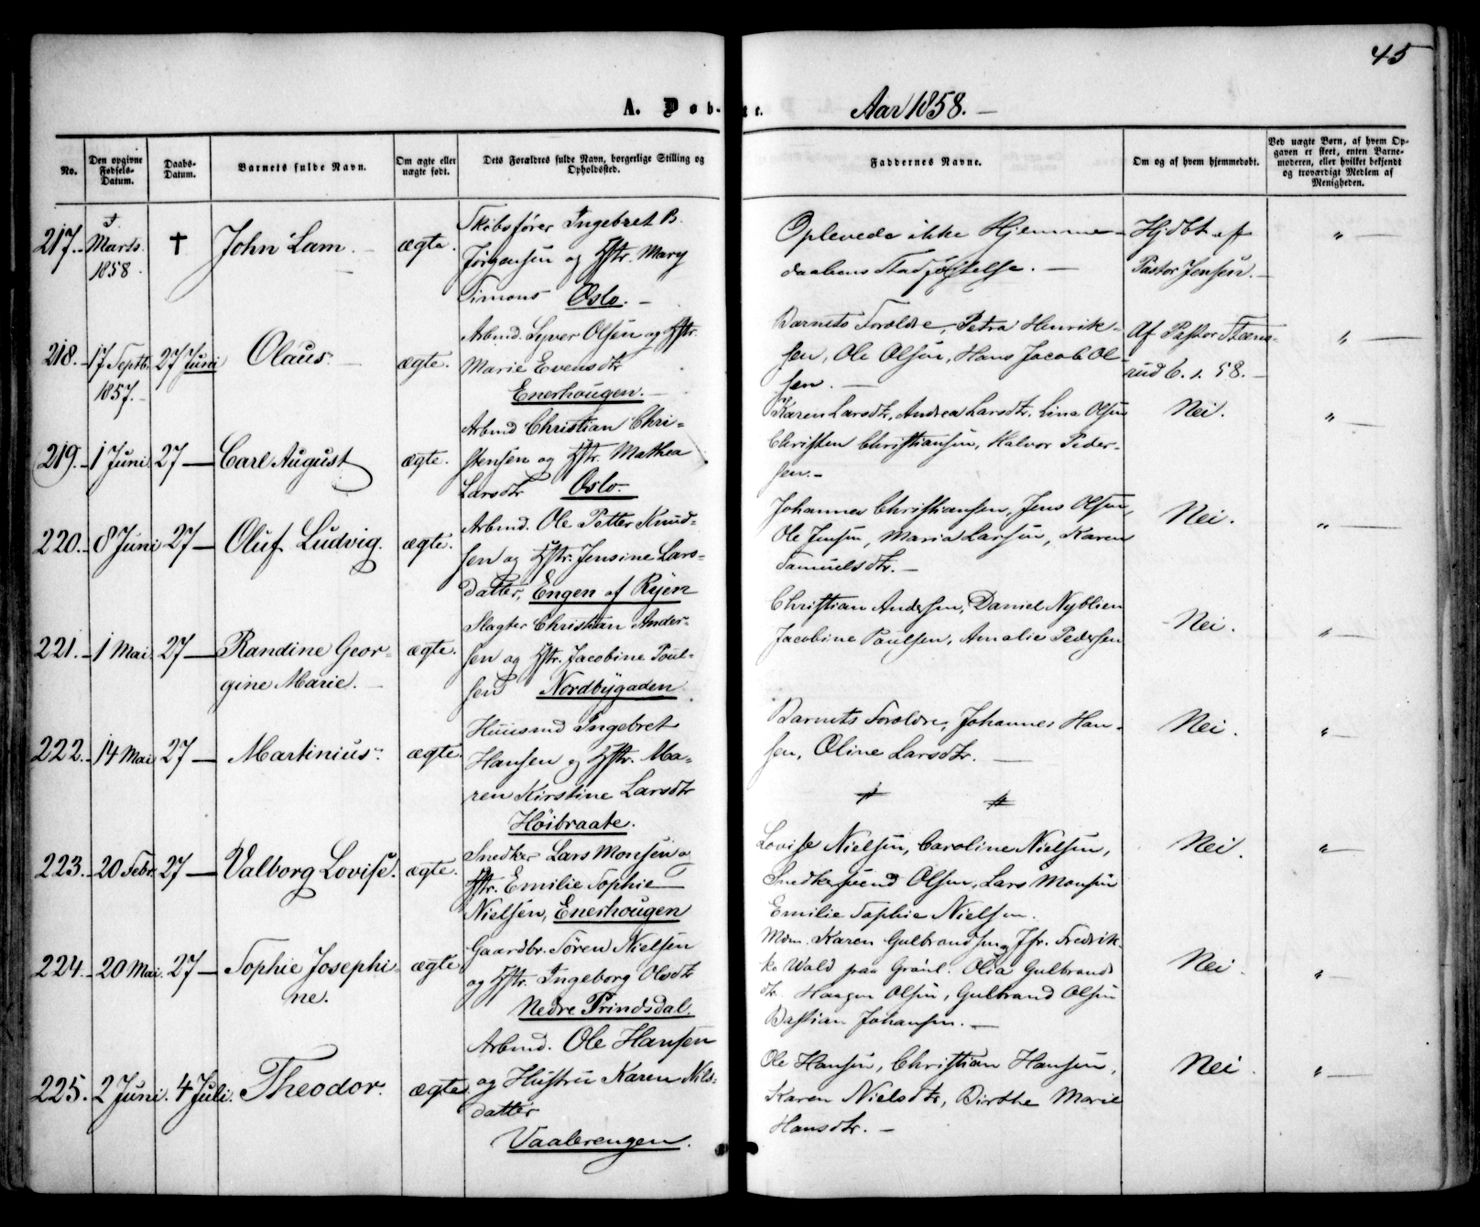 45
A. Døbte. Aar 1858.
No.
Den opgivne Fødsels-Datum.
Daabs-Datum.
Barnets fulde Navn.
Om ægte eller uægte født.
Dets Forældres fulde Navn, borgerlige Stilling og Opholdssted.
Faddernes Navne.
Om og af hvem hjemmedøbt.
Ved uægte Børn, af hvem Opgaven er skeet, enten Barnemoderen, eller hvilket bekjendt og troværdigt Medlem af Menigheden.
217. Marts 1858. † John Lam. ægte.
Skibsfører Ingebret B.
Jørgensen og Hstr. Mary
Simons Oslo.
Oplevede ikke Hjemme-
daabens Stadfæstelse.
Hjdbt af
Pastor Jensen.
"
218. 17 Septb. 1857. 27 Juni Olaus. ægte.
Arbmd. Syver Olsen og Hstr.
Marie Evensdtr
Enerhougen.
Barnets Forældre, Petra Henrik-
sen, Ole Olsen, Hans Jacob Ol-
sen.
Af Pastor
6. 1. 58.
"
219. 1 Juni 27 Carl August ægte.
Arbmd Christian Chri-
stensen og Hstr. Mathea
Larsdtr Oslo.
Karen Larsdtr, Andrea Larsdtr. Lina Olsen
Christen Christiansen, Halvor Peder-
sen.
Nei.
"
220. 8 Juni 27 Oluf Ludvig. ægte.
Arbmd. Ole Petter Knud-
sen og Hstr. Jensine Lars-
datter, Engen af Ryen
Johannes Christiansen, Jens Olsen,
Ole Jensen, Maria Larsen, Karen
Samuelsdtr.
Nei.
"
221. 1 Mai. 27 Randine Geor-
gine Marie. ægte.
Slagter Christian Ander-
sen og Hstr. Jacobine Poul-
sen Nordbygaden.
Christian Andersen, Daniel Nyblien
Jacobine Paulsen, Amalie Pedersen
Nei.
"
222. 14 Mai 27 Martinius. ægte.
Huusmd Ingebret
Hansen og Hstr. Ma-
ren Kirstine Larsdtr
Høibraate.
Barnets Forældre, Johannes Han-
sen, Oline Larsdtr.
Nei.
"
223. 20 Febr. 27 Valborg Lovise. ægte.
Snedker Lars Monsen og
Hstr. Emilie Sophie
Nielsen, Enerhougen
Lovise Nielsen, Caroline Nielsen,
Snedkersvend Olsen, Lars Monsen
Emilie Sophie Nielsen.
Nei.
"
224. 20 Mai. 27 Sophie Josephi-
ne. ægte
Gaardbr. Søren Nielsen
og Hstr. Ingeborg Olsdtr
Nedre Prindsdal.
Mdm. Karen Gulbrandsen, Jfr. Fredrik-
ke Wald paa Grønl. Olia Gulbrands
dtr. Haagen Olsen, Gulbrand Olsen
Bastian Johansen.
Nei.
"
225. 2 Juni. 4 Juli. Theodor. ægte
Arbmd. Ole Hansen
og Hustru Karen Nils-
datter
Vaalerengen.
Ole Hansen, Christian Hansen,
Karen Nielsdtr, Birthe Marie
Hansdtr.
Nei.
"